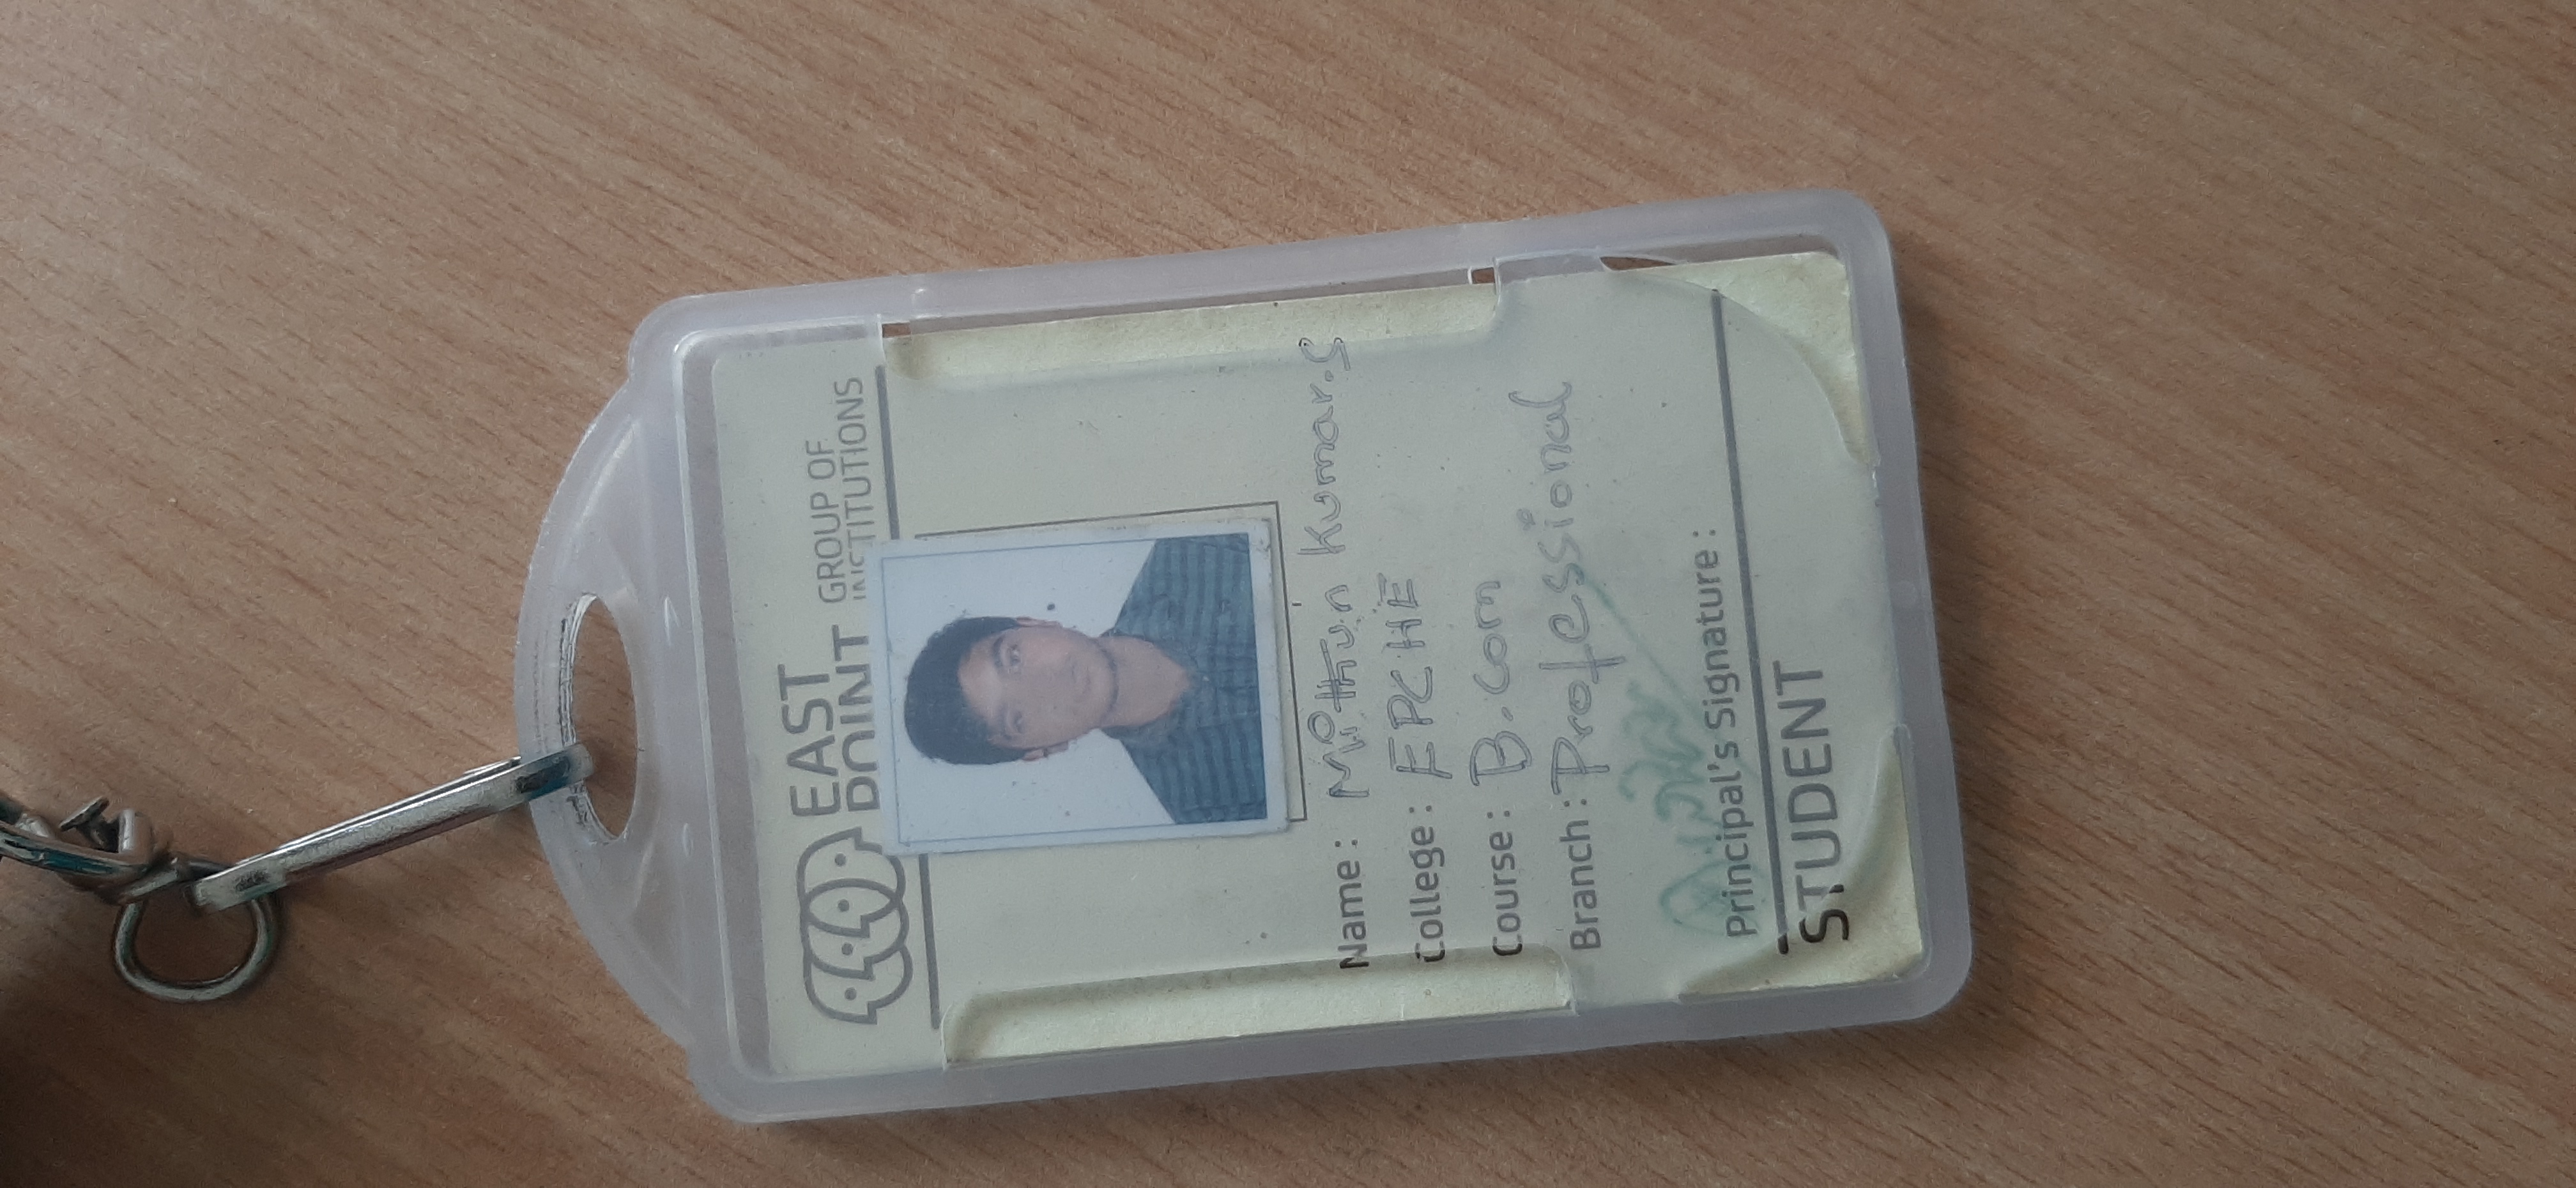 EAST
POINT
GROUP OF
INSTITUTIONS
Name : Mithun Kumar.S
College : EPCHE
Course : B.com
Branch : Professional
Principal's Signature :
STUDENT